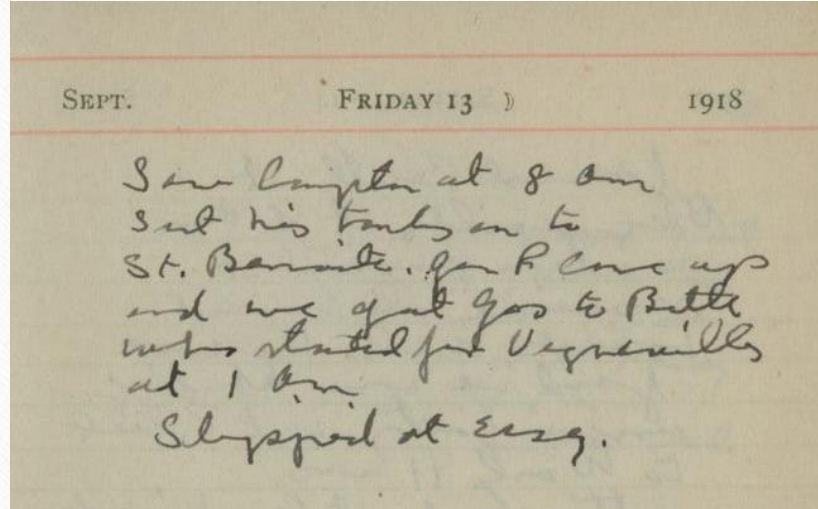 SEPT. FRIDAY 13 1918
Saw Compton at 8 Am
Sent his tanks on to
St. Benoite. Gen R came up
and we got gas to Brett
who started for Vigneulles
at 1 Am
Slept at Essey.